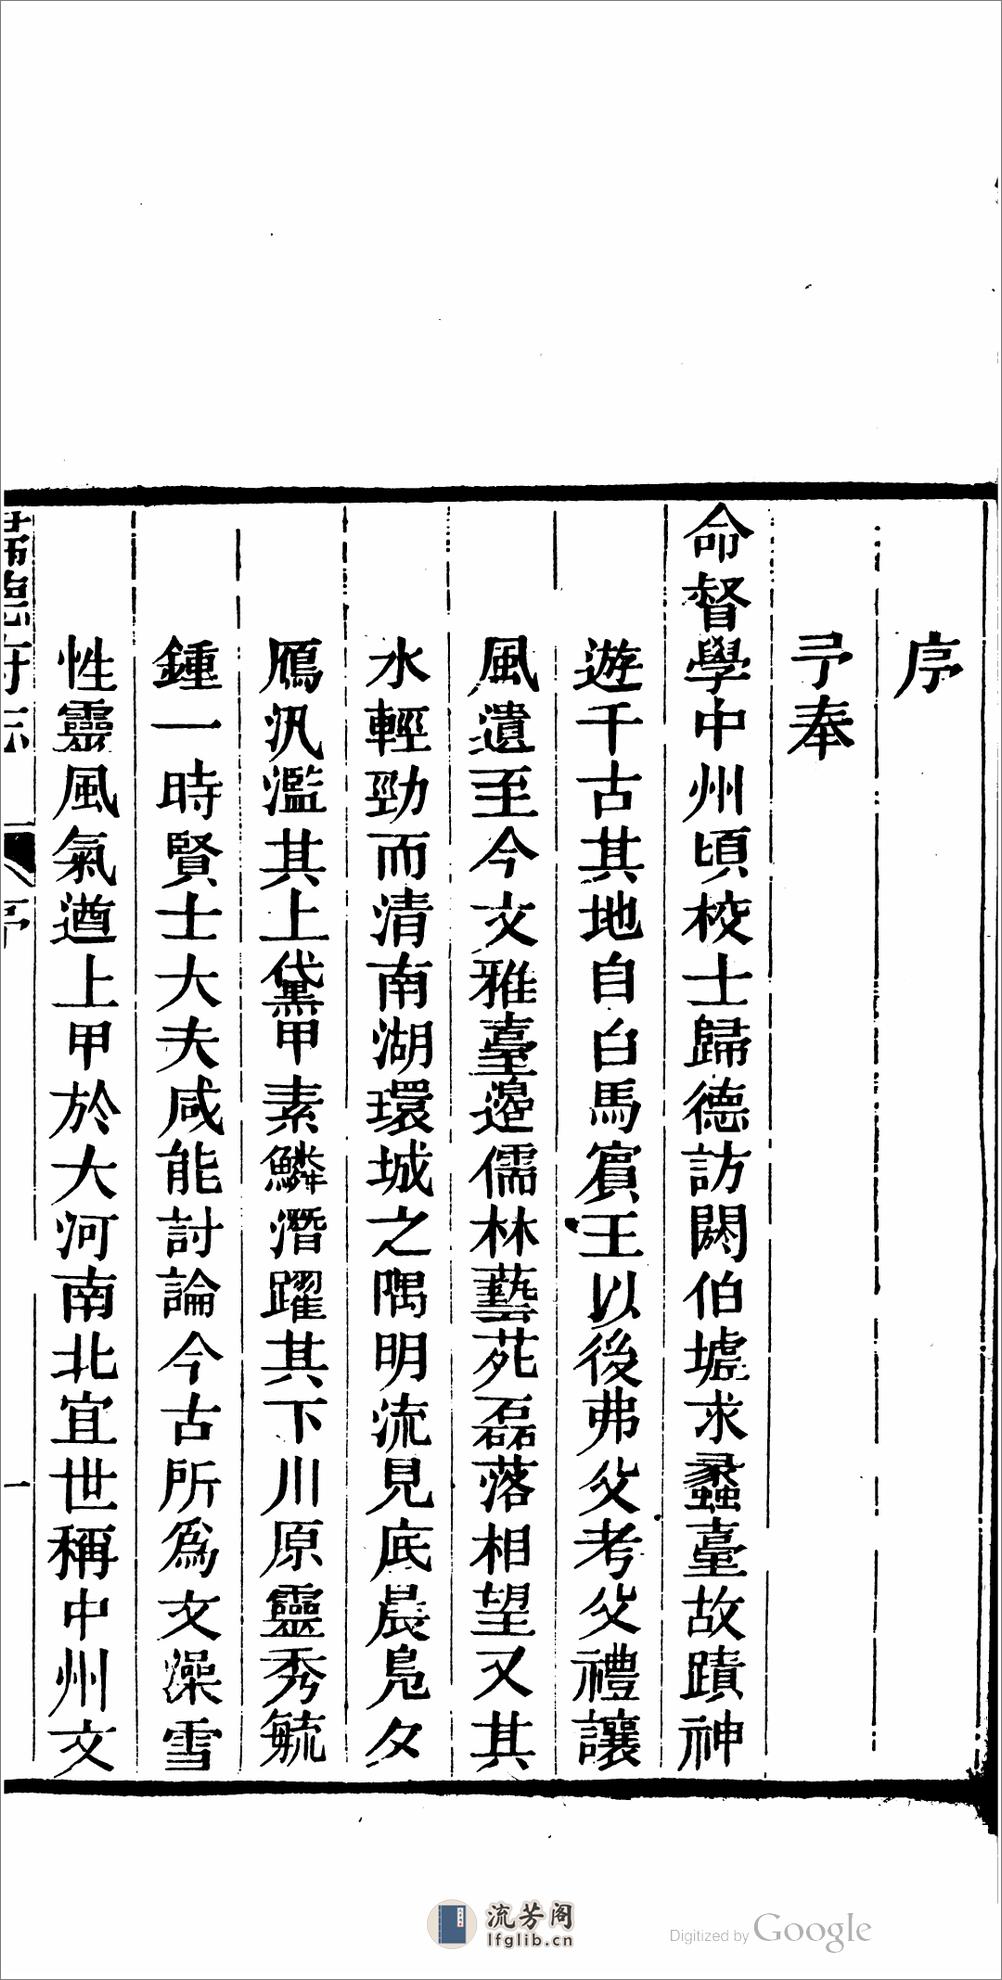 序
予奉
命督學中州頃校士歸德訪閼伯墟求蠡臺故蹟神
遊千古其地自白馬賓王以後弗父考父禮讓
風遺至今文雅臺邉儒林藝苑磊落相望又其
水輕勁而清南湖環城之隅明流見底晨鳧夕
鴈汎濫其上黛甲素鱗潛躍其下川原靈秀毓
鍾一時賢士大夫咸能討論今古所爲文澡雪
性靈風氣遒上甲於大河南北宜世稱中州文
歸德府志
序
一
流芳阁
lfglib.cn
Digitized by Google